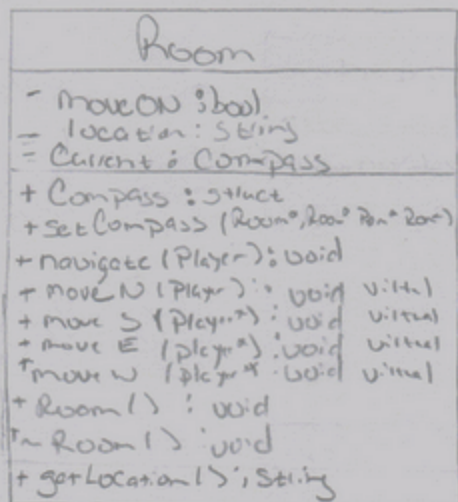 Room
- moveON : bool
- location : String
- Current : Compass
+ Compass : struct
+ setCompass (Room*, Room*
+ navigate (Player) : void
+ move N (Player) : void virtual
+ move S (Player*) : void virtual
+ move E (Player*) : void virtual
+ move W (Player* : void virtual
+ Room() : void
+~ Room() : void
+ getLocation() : String